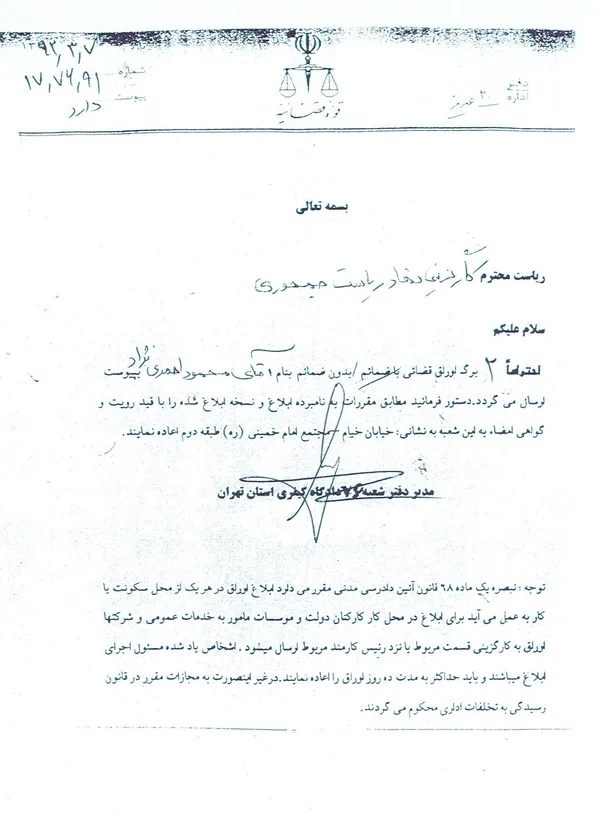 ۱۳۹۲,۳,۷
شماره
۱۷,۷۶,۹۱
پیوست
دارد
دفتر
اداره
قوه قضائیه
بسمه تعالی
ریاست محترم کارگزینی نهاد ریاست جمهوری
سلام علیکم
احتراماً ۲ برگ اوراق قضائی با ضمائم /بدون ضمائم بنام آقای محمود احمدی نژاد بپیوست
ارسال می گردد.دستور فرمائید مطابق مقررات به نامبرده ابلاغ و نسخه ابلاغ شده را با قید رویت و
گواهی امضاء به این شعبه به نشانی: خیابان خیام – مجتمع امام خمینی (ره) طبقه دوم اعاده نمایند.
مدیر دفتر شعبه ۷۶ دادگاه کیفری استان تهران
توجه : تبصره یک ماده ۶۸ قانون آئین دادرسی مدنی مقرر می دارد ابلاغ اوراق در هر یک از محل سکونت یا
کار به عمل می آید برای ابلاغ در محل کار کارکنان دولت و موسسات مامور به خدمات عمومی و شرکتها
اوراق به کارگزینی قسمت مربوط یا نزد رئیس کارمند مربوط ارسال میشود . اشخاص یاد شده مسئول اجرای
ابلاغ میباشند و باید حداکثر به مدت ده روز اوراق را اعاده نمایند.درغیر اینصورت به مجازات مقرر در قانون
رسیدگی به تخلفات اداری محکوم می گردند.